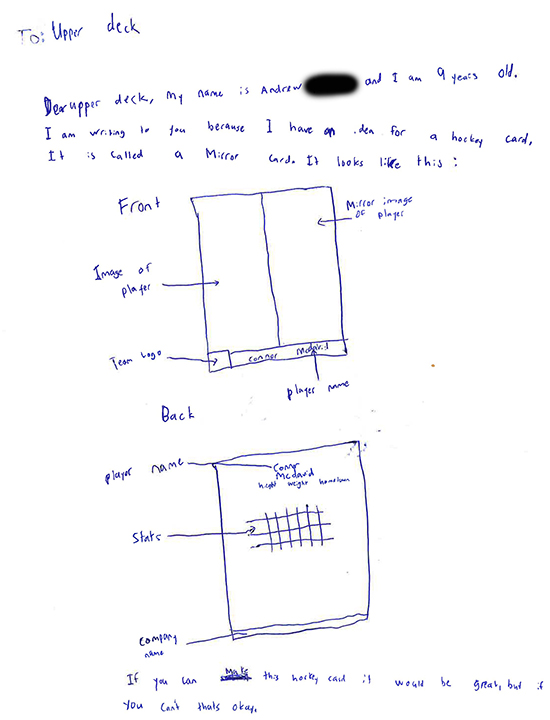 To: Upper deck
Dear upper deck, My name is Andrew and I am 9 years old.
I am writing to you because I have an idea for a hockey card,
It is called a Mirror Card. It looks like this:
Front
Mirror image
OF player
Image OF
player
Team Logo
conner Mcdavid
player name
Back
player name
Conner
Mcdavid
height weight hometown
Stats
Company
name
If you can Make this hockey card it would be great, but if
you can't thats okay.